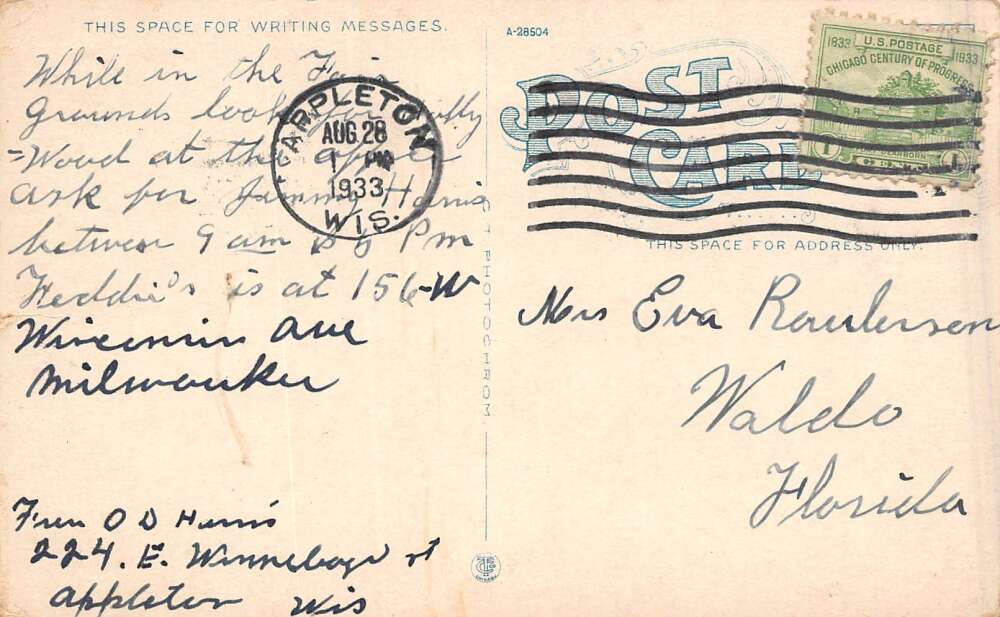 THIS SPACE FOR WRITING MESSAGES.
While in the Fair
Grounds look for Holly
=Wood at the
ask for Jimmy Harris
between 9 am & 9 Pm
Feddie's is at 156-W
Wisconsin Ave
Milwaukee
From O D Harris
224. E. Winnebago st
Appleton Wis
APPLETON
AUG 28
1 PM
1933
WIS.
C.T. PHOTOCHROM
A-28504
POST
CARD
THIS SPACE FOR ADDRESS ONLY.
1833 U.S. POSTAGE 1933
CHICAGO CENTURY OF PROGRESS
FORT DEARBORN
1 CENT 1
Mrs Eva Roulerson
Waldo
Florida